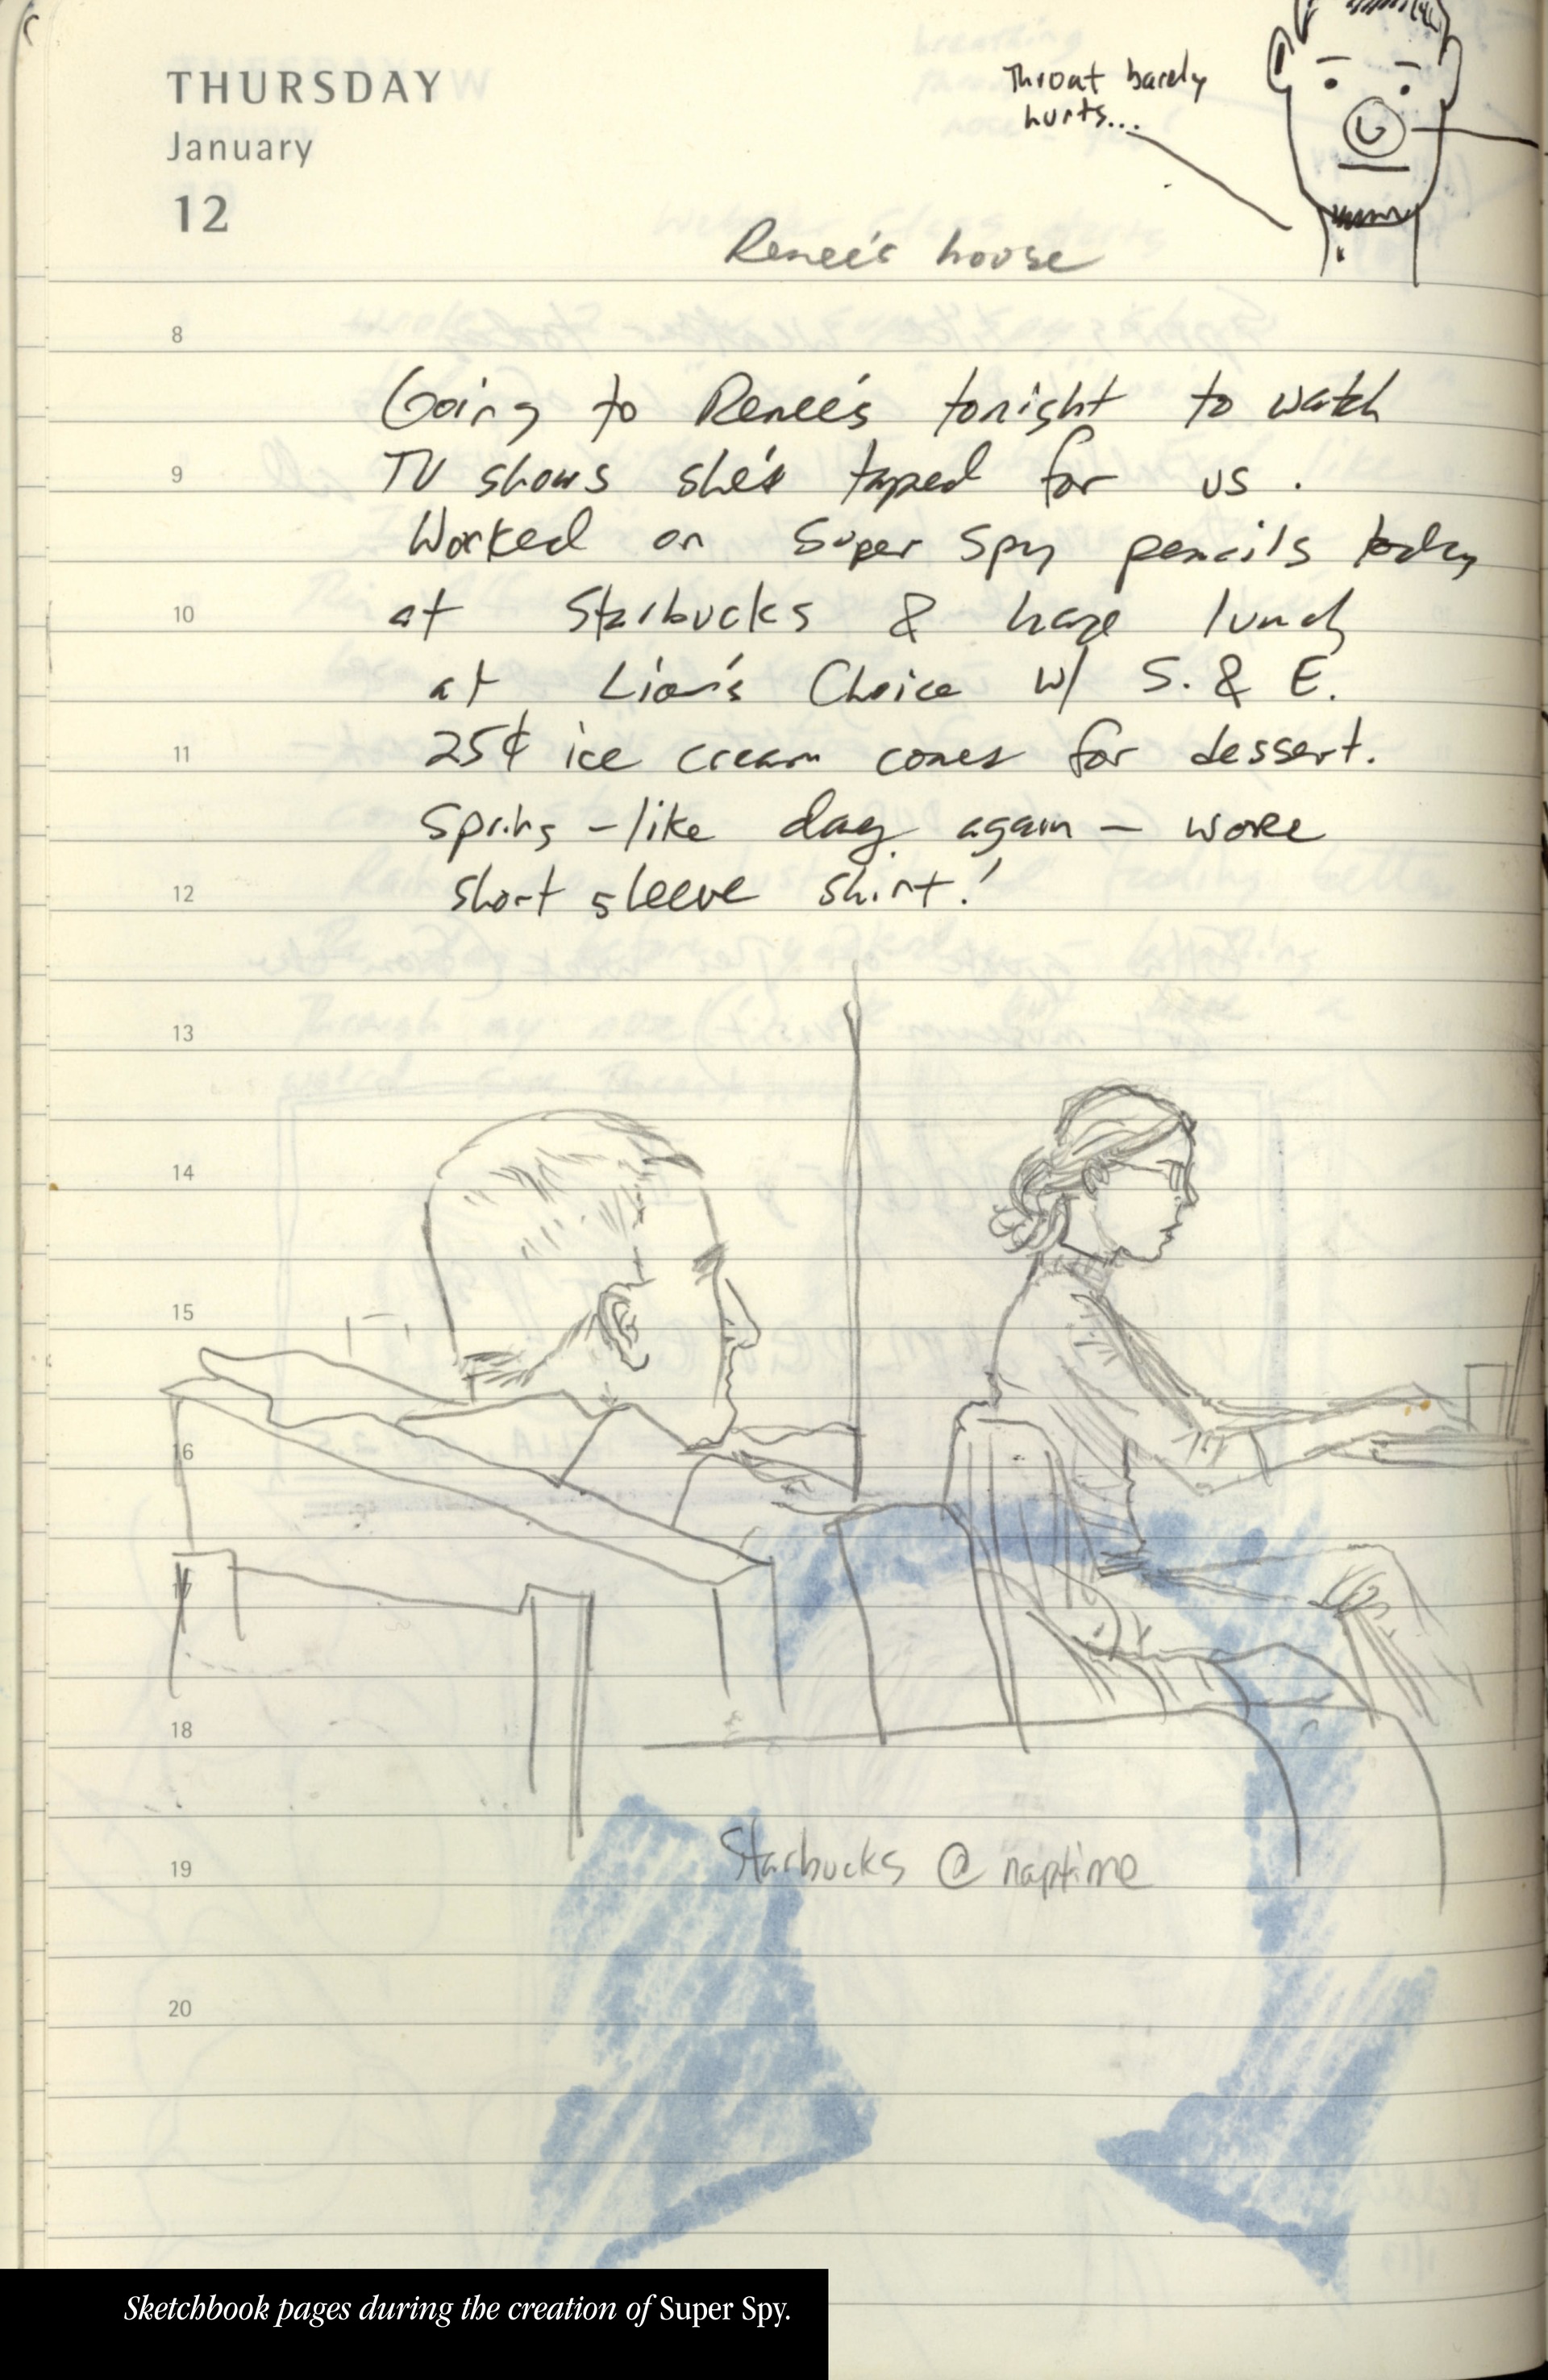 THURSDAY
January
12
Throat barely
hurts...
Renee's house
8
Going to Renee's tonight to watch
9
TV shows she's taped for us.
Worked on Super Spy pencils today
10
at Starbucks & have lunch
at Lion's Choice w/ S. & E.
11
25¢ ice cream cones for dessert.
Spring-like day again – wore
12
short sleeve shirt!
13
14
15
16
17
18
Starbucks @ naptime
19
20
Sketchbook pages during the creation of Super Spy.